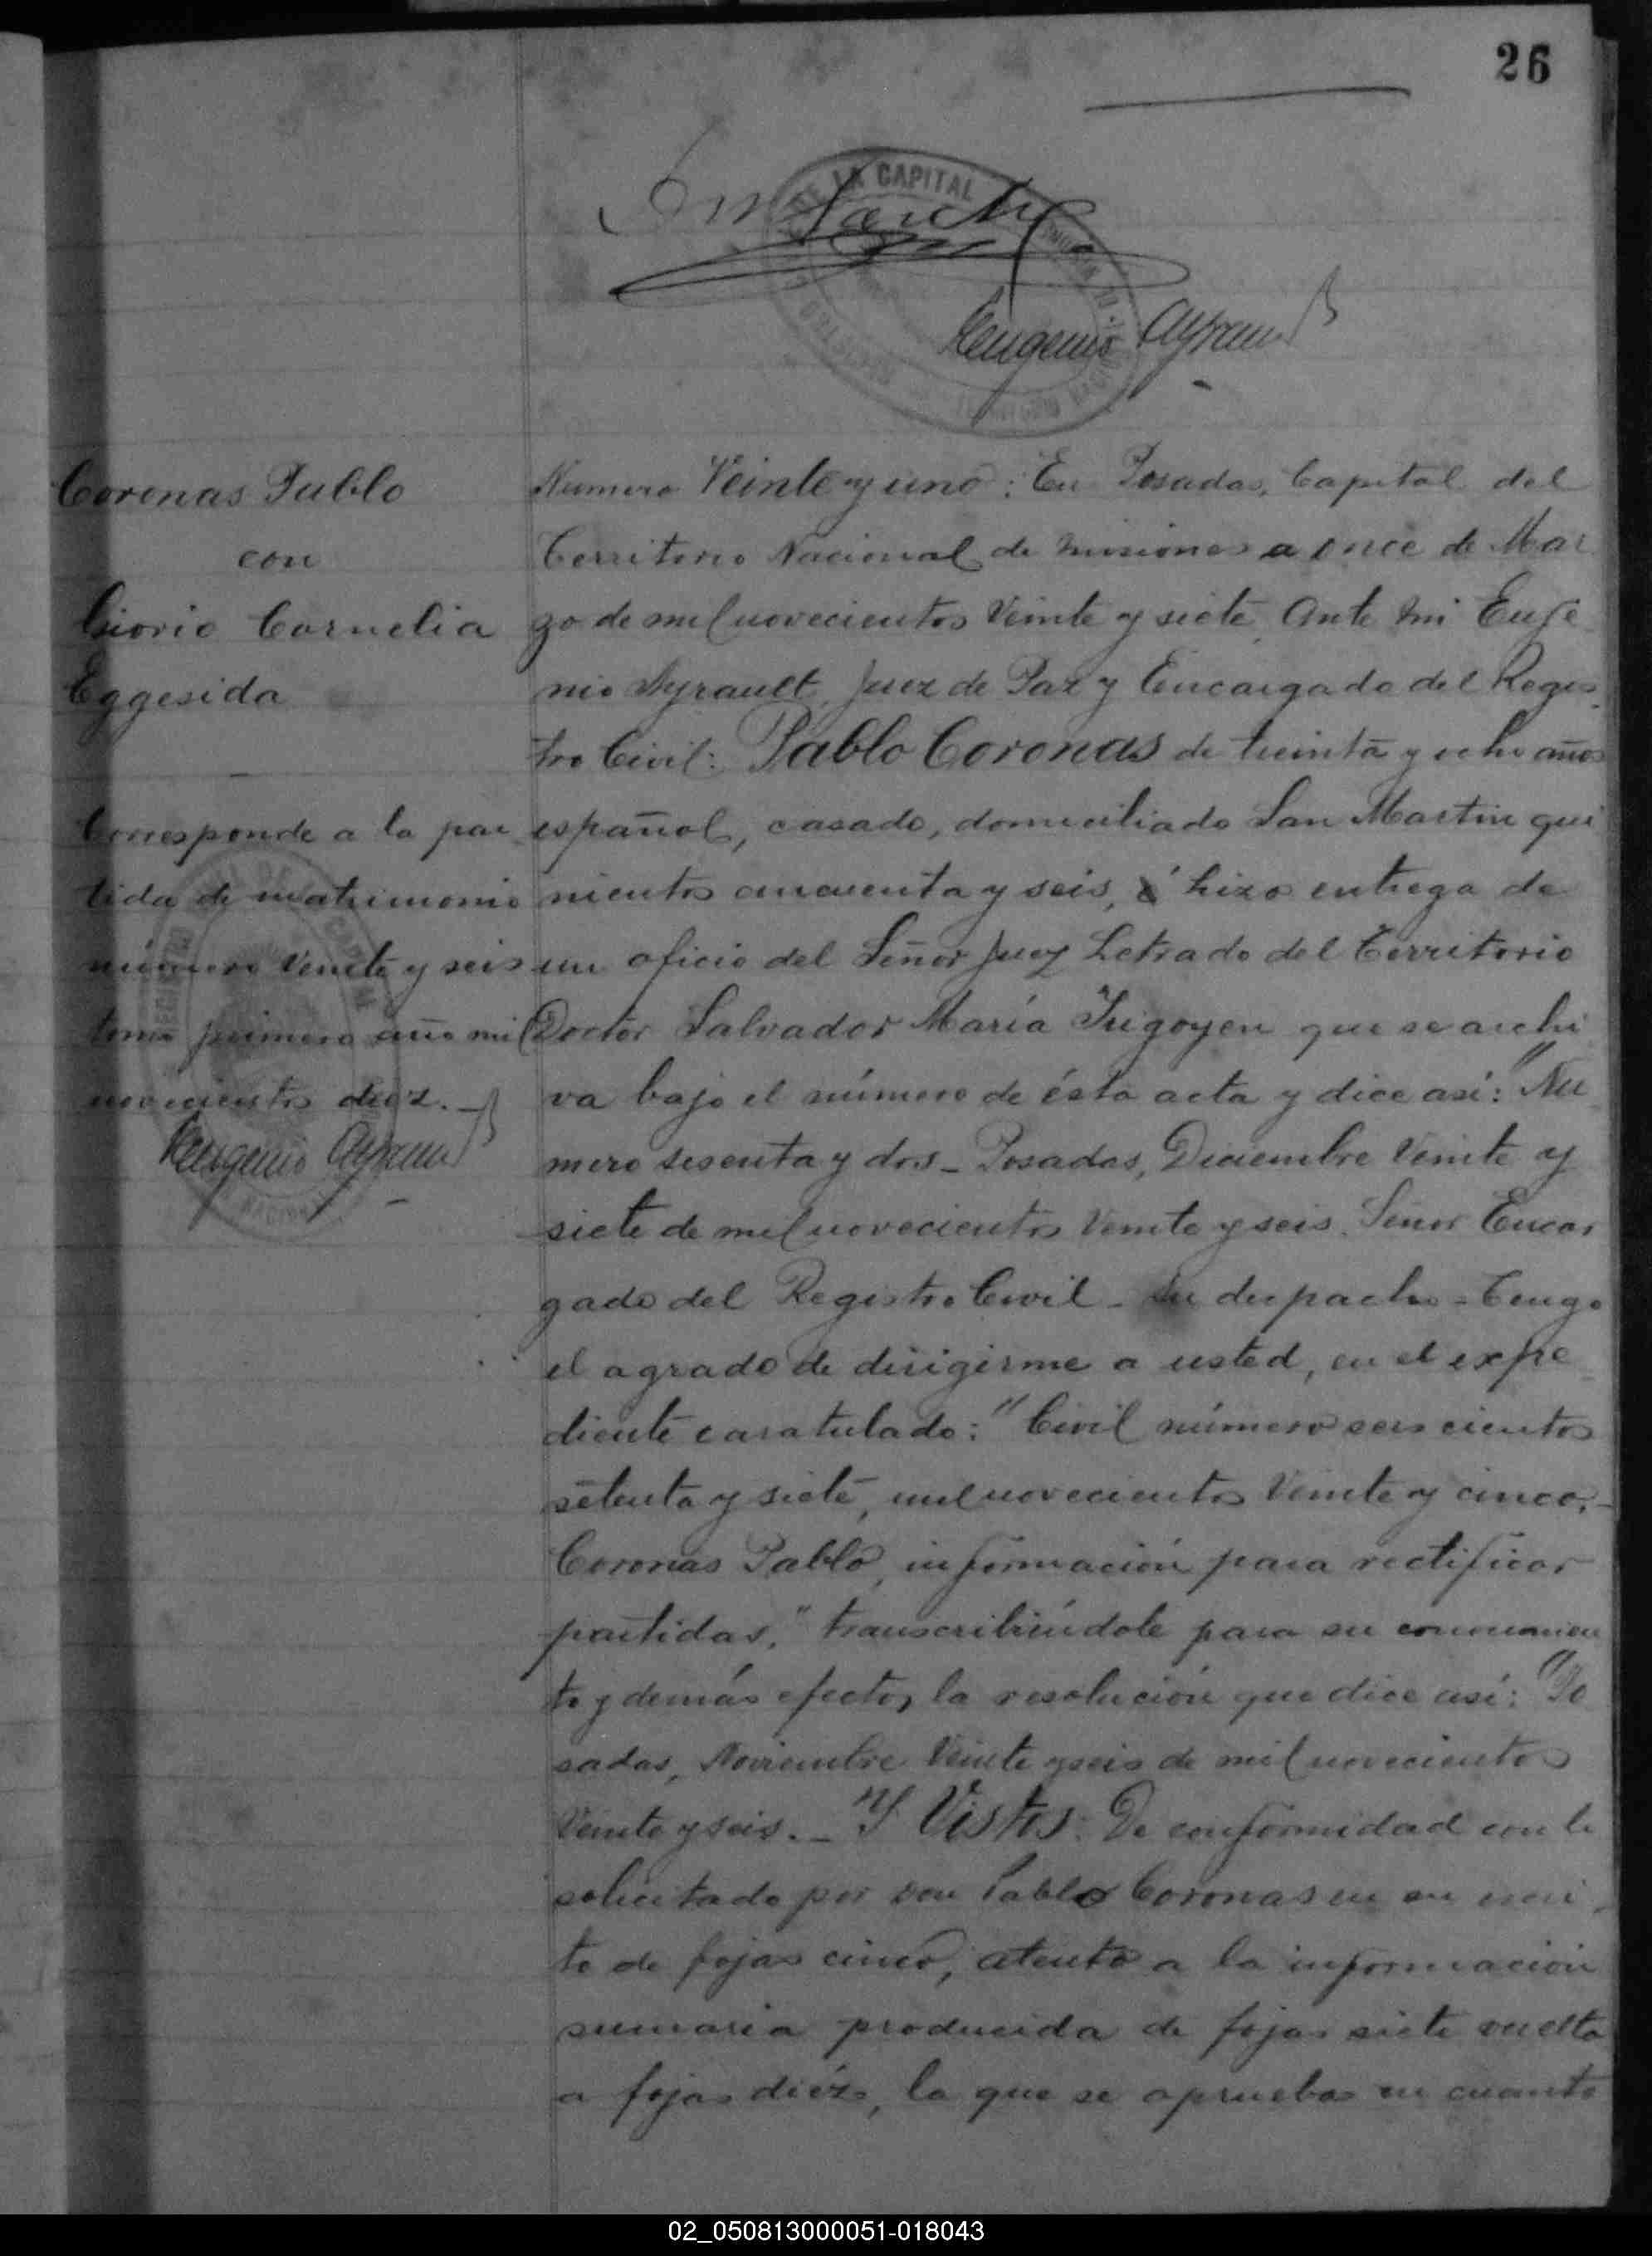 26
DE LA CAPITAL
Eugenio Ayrault
Coronas Pablo
con
Giorio Cornelia
Eggesida
Corresponde a la par
tida de matrimonio
número Veinte y seis
tomo primero año mil
novecientos diez.
Eugenio Ayrault
Numero Veinte y uno: En Posadas, Capital del
Territorio Nacional de Misiones a once de Mar
zo de mil novecientos Veinte y siete Ante mi Euge
nio Ayrault, Juez de Paz y Encargado del Regis
tro Civil: Pablo Coronas de treinta y ocho años
español, casado, domiciliado San Martin qui
nientos cincuenta y seis, hizo entrega de
un oficio del Señor Juez Letrado del Territorio
Doctor Salvador María Irigoyen que se archi
va bajo el número de ésta acta y dice así: "Nu
mero sesenta y dos - Posadas, Diciembre Veinte y
siete de mil novecientos Veinte y seis. Señor Encar
gado del Registro Civil - Su despacho - Tengo
el agrado de dirigirme a usted, en el expe
diente caratulado: "Civil número seis cientos
setenta y siete, mil novecientos Veinte y cinco,-
Coronas Pablo, información para rectificar
partidas," transcribiéndole para su conocimien
to y demás efectos la resolución que dice así: "Po
sadas, Noviembre Veinte y seis de mil novecientos
Veinte y seis. - "Y Vistos: De conformidad con lo
solicitado por Don Pablo Coronas en su escri
to de fojas cinco, atento a la información
sumaria producida de fojas siete vuelta
a fojas diéz, la que se aprueba en cuanto
02_050813000051-018043